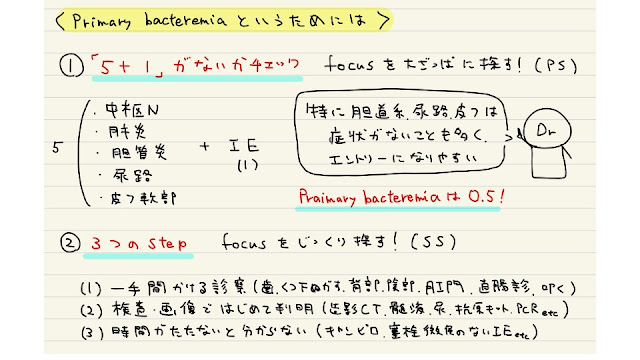 < Primary bacteremia というためには >
① 「5+1」がないかチェック focusを大ざっぱに探す!(PS)
5
・中枢N
・肺炎
・胆管炎
・尿路
・皮フ軟部
+ IE
(1)
特に胆道系、尿路、皮フは
症状がないことも多く、
エントリーになりやすい
Dr
Praimary bacteremiaは0.5!
② 3つのstep focusをじっくり探す!(SS)
(1) 一手間かける診察(歯、くつ下ぬがす、背部、陰部、肛門、直腸診、叩く)
(2) 検査・画像ではじめて判明(造影CT、髄液、尿、抗原キット、PCR etc)
(3) 時間がたたないと分からない(キャンピロ、塞栓徴候のないIE etc)